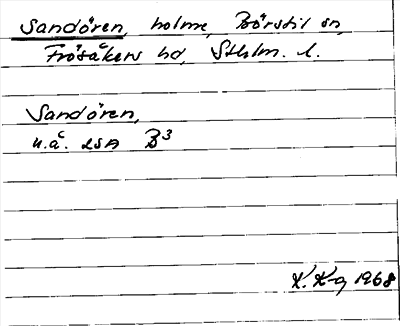 Sandören, holme, Börstil sn,
Frösåkers hd, Sthlm. l.
Sandören,
u.å. LSA B3
K. K-g 1968